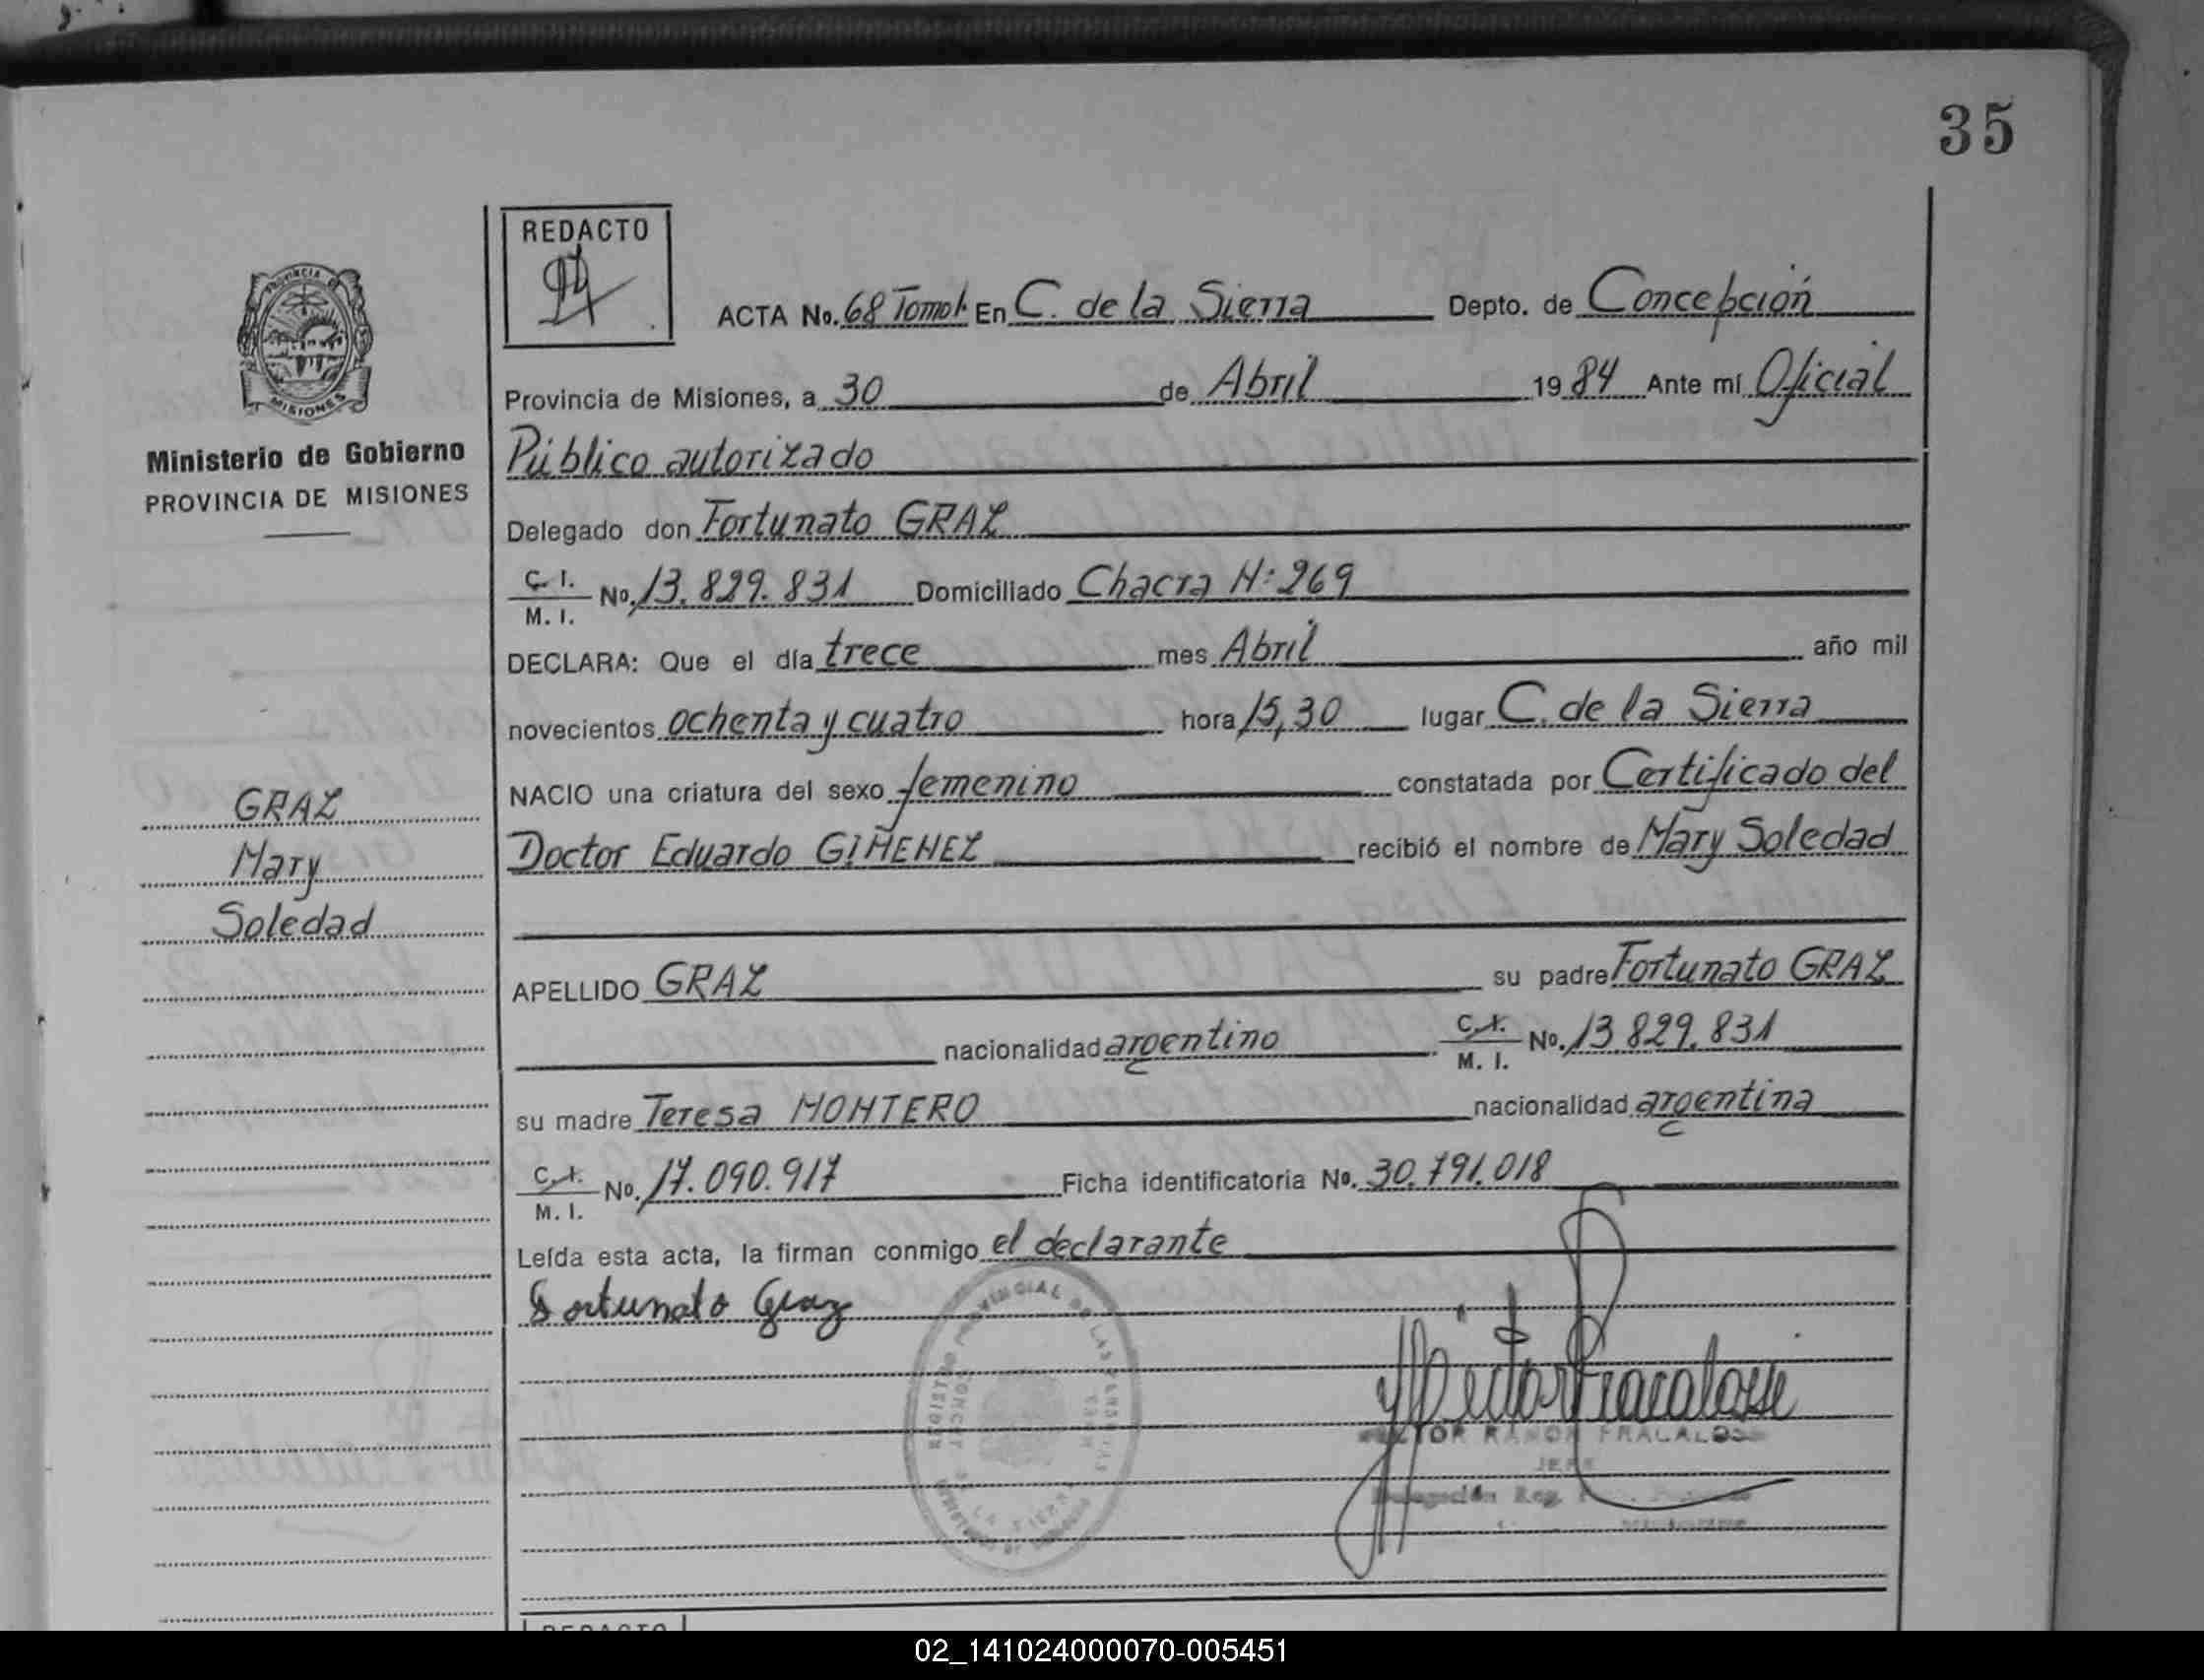 35
REDACTO
ACTA No. 68 Tomo I. En C. de la Sierra Depto. de Concepción
Provincia de Misiones, a 30 de Abril 1984 Ante mí Oficial
Ministerio de Gobierno
PROVINCIA DE MISIONES
Público autorizado
Delegado don Fortunato GRAZ
C. I.
M. I.
No. 13.829.831 Domiciliado Chacra N: 269
DECLARA: Que el día trece mes Abril año mil
novecientos ochenta y cuatro hora 15,30 lugar C. de la Sierra
NACIO una criatura del sexo femenino constatada por Certificado del
Doctor Eduardo GIMENEZ recibió el nombre de Mary Soledad
GRAZ
Mary
Soledad
APELLIDO GRAZ su padre Fortunato GRAZ
nacionalidad argentino C. I. M. I. No. 13.829.831
su madre Teresa MONTERO nacionalidad argentina
C. I.
M. I.
No. 17.090.917 Ficha identificatoria No. 30.791.018
Leída esta acta, la firman conmigo el declarante
Fortunato Graz
PROVINCIA
MISIONES
PROVINCIAL DE LAS PERSONAS
HECTOR RAMON FRACALOSSI
JEFE
Delegación Reg.
REDACTO
02_141024000070-005451